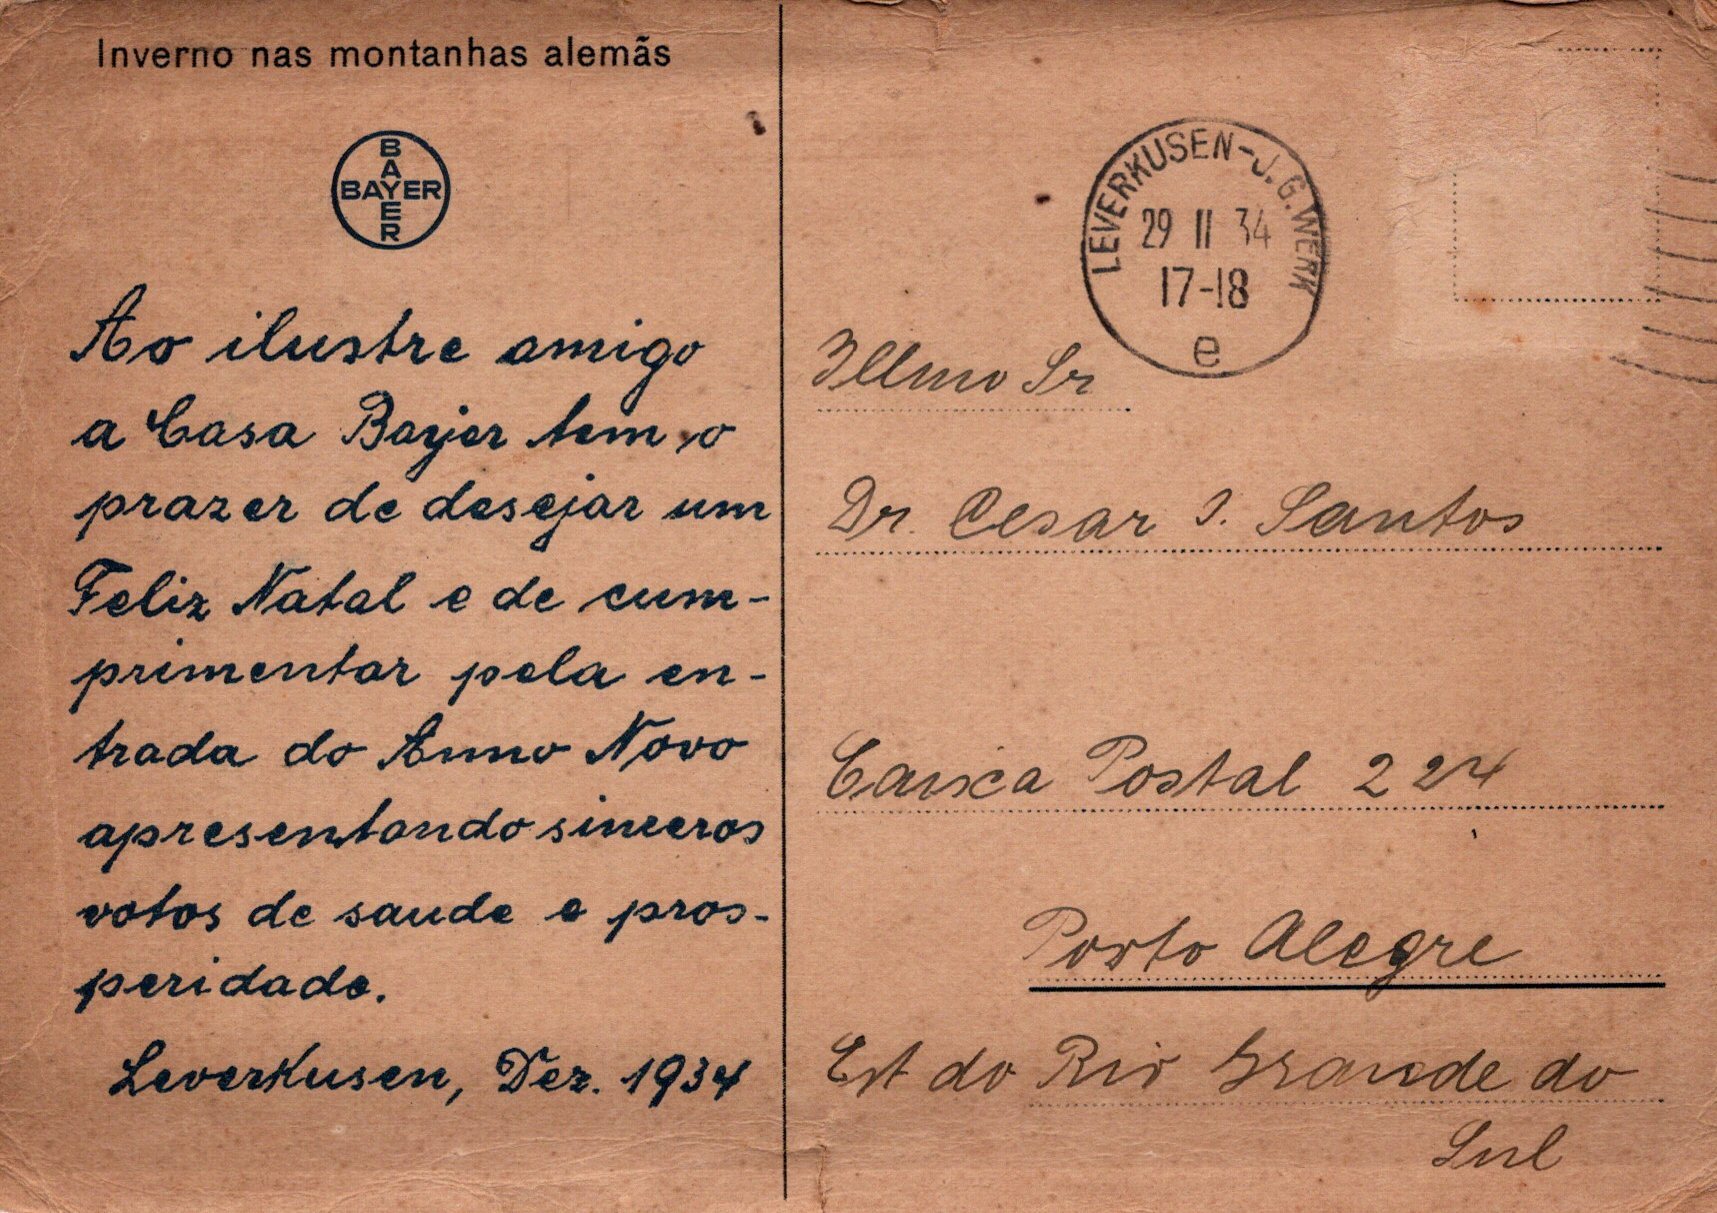 Inverno nas montanhas alemãs
BAYER
BAYER
Ao ilustre amigo
a Casa Bayer tem o
prazer de desejar um
Feliz Natal e de cum-
primentar pela en-
trada do Anno Novo
apresentando sinceros
votos de saude e pros-
peridade.
Leverkusen, Dez. 1934
LEVERKUSEN-J.G.WERK
29 11 34
17-18
e
Illmo Sr
Dr. Cesar S. Santos
Caixa Postal 224
Porto Alegre
Est do Rio Grande do
Sul